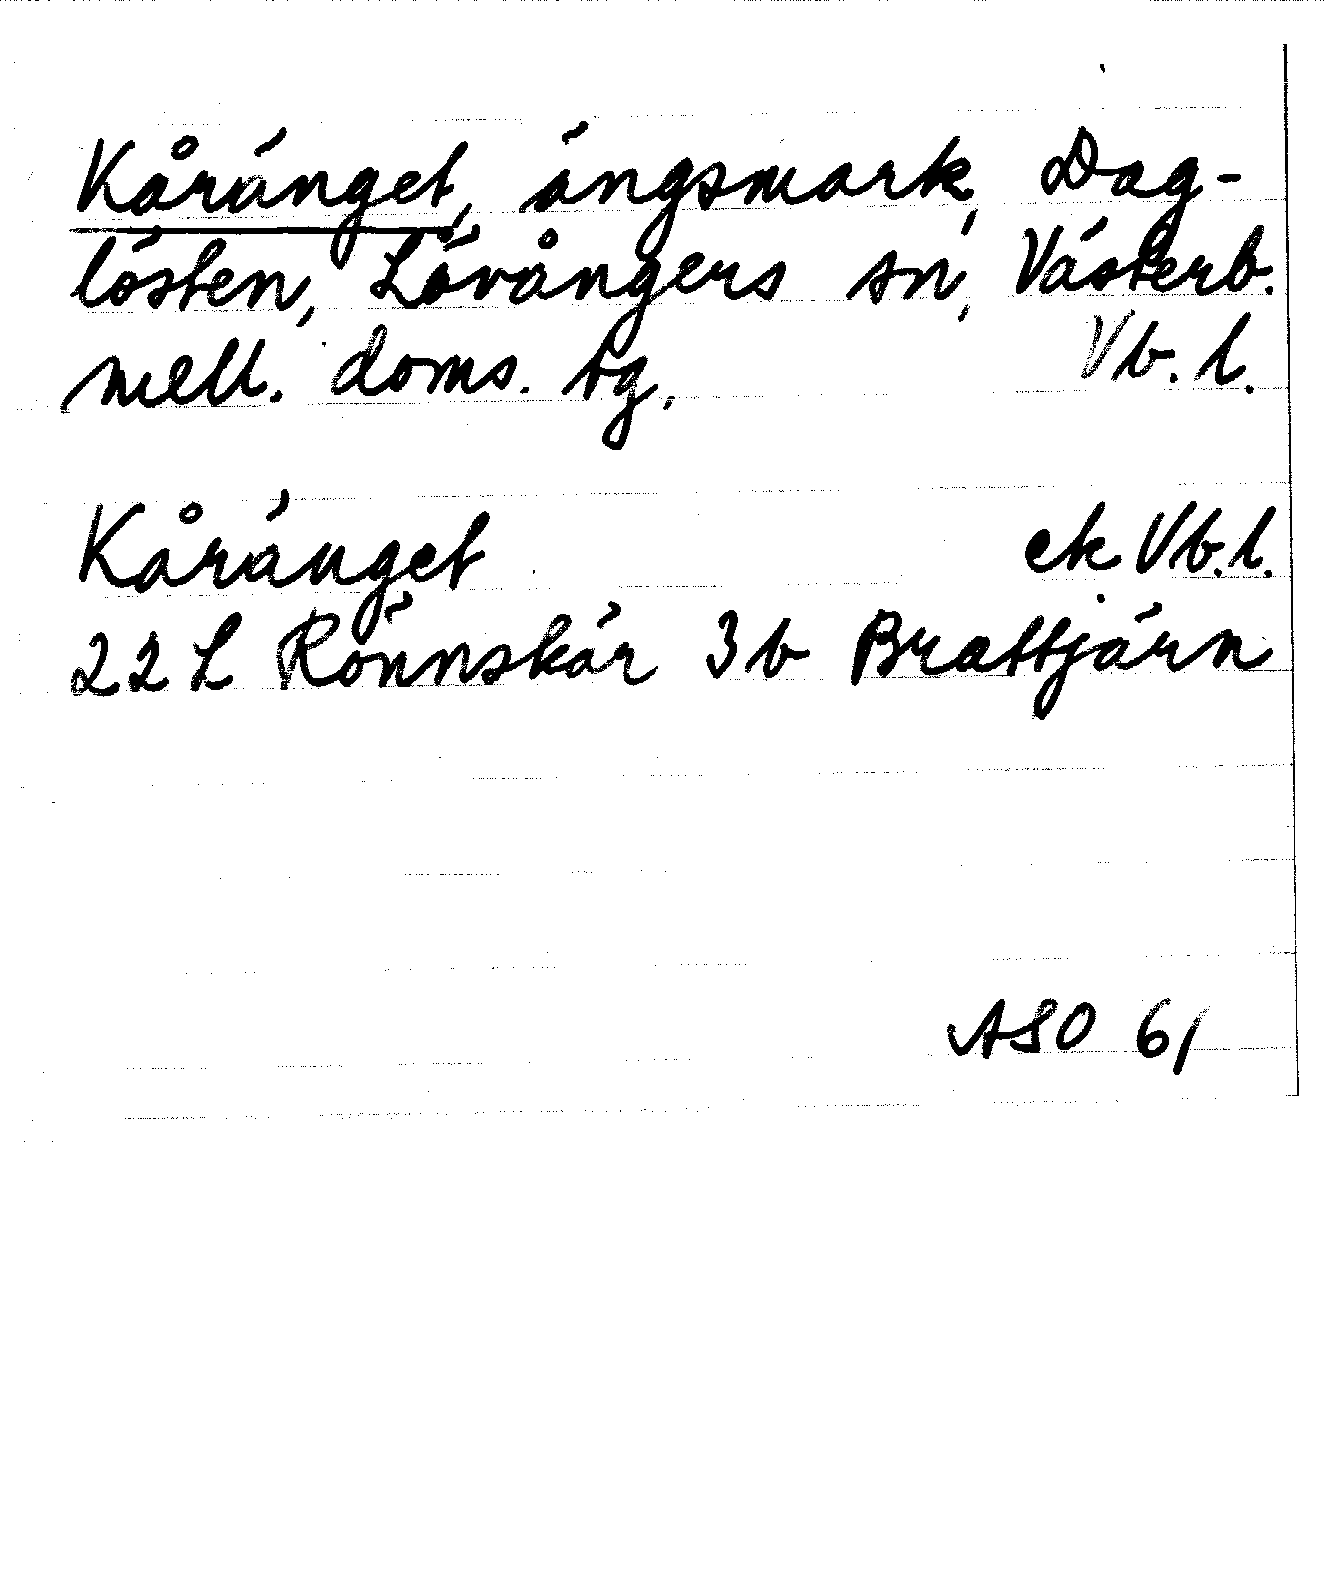 Kåränget, ängsmark, Dag-
lösten, Lövångers sn, Västerb.
mell. doms. tg. Vb. l.
Kåränget ek Vb. l.
22 L Rönnskär 3 b Brattjärn
ASO 61